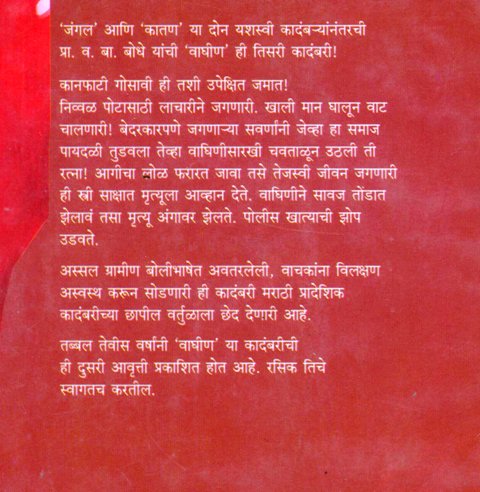 'जंगल' आणि 'कातण' या दोन यशस्वी कादंबऱ्यांनंतरची
प्रा. व. बा. बोधे यांची 'वाघीण' ही तिसरी कादंबरी!
कानफाटी गोसावी ही तशी उपेक्षित जमात!
निव्वळ पोटासाठी लाचारीने जगणारी. खाली मान घालून वाट
चालणारी! बेदरकारपणे जगणाऱ्या सवर्णांनी जेव्हा हा समाज
पायदळी तुडवला तेव्हा वाघिणीसारखी चवताळून उठली ती
रत्ना! आगीचा लोळ फरारत जावा तसे तेजस्वी जीवन जगणारी
ही स्त्री साक्षात मृत्यूला आव्हान देते. वाघिणीने सावज तोंडात
झेलावं तसा मृत्यू अंगावर झेलते. पोलीस खात्याची झोप
उडवते.
अस्सल ग्रामीण बोलीभाषेत अवतरलेली, वाचकांना विलक्षण
अस्वस्थ करून सोडणारी ही कादंबरी मराठी प्रादेशिक
कादंबरीच्या छापील वर्तुळाला छेद देणारी आहे.
तब्बल तेवीस वर्षांनी 'वाघीण' या कादंबरीची
ही दुसरी आवृत्ती प्रकाशित होत आहे. रसिक तिचे
स्वागतच करतील.